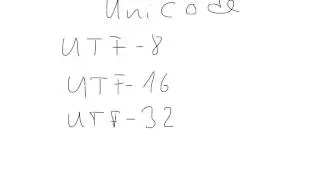 Unicode
UTF-8
UTF-16
UTF-32